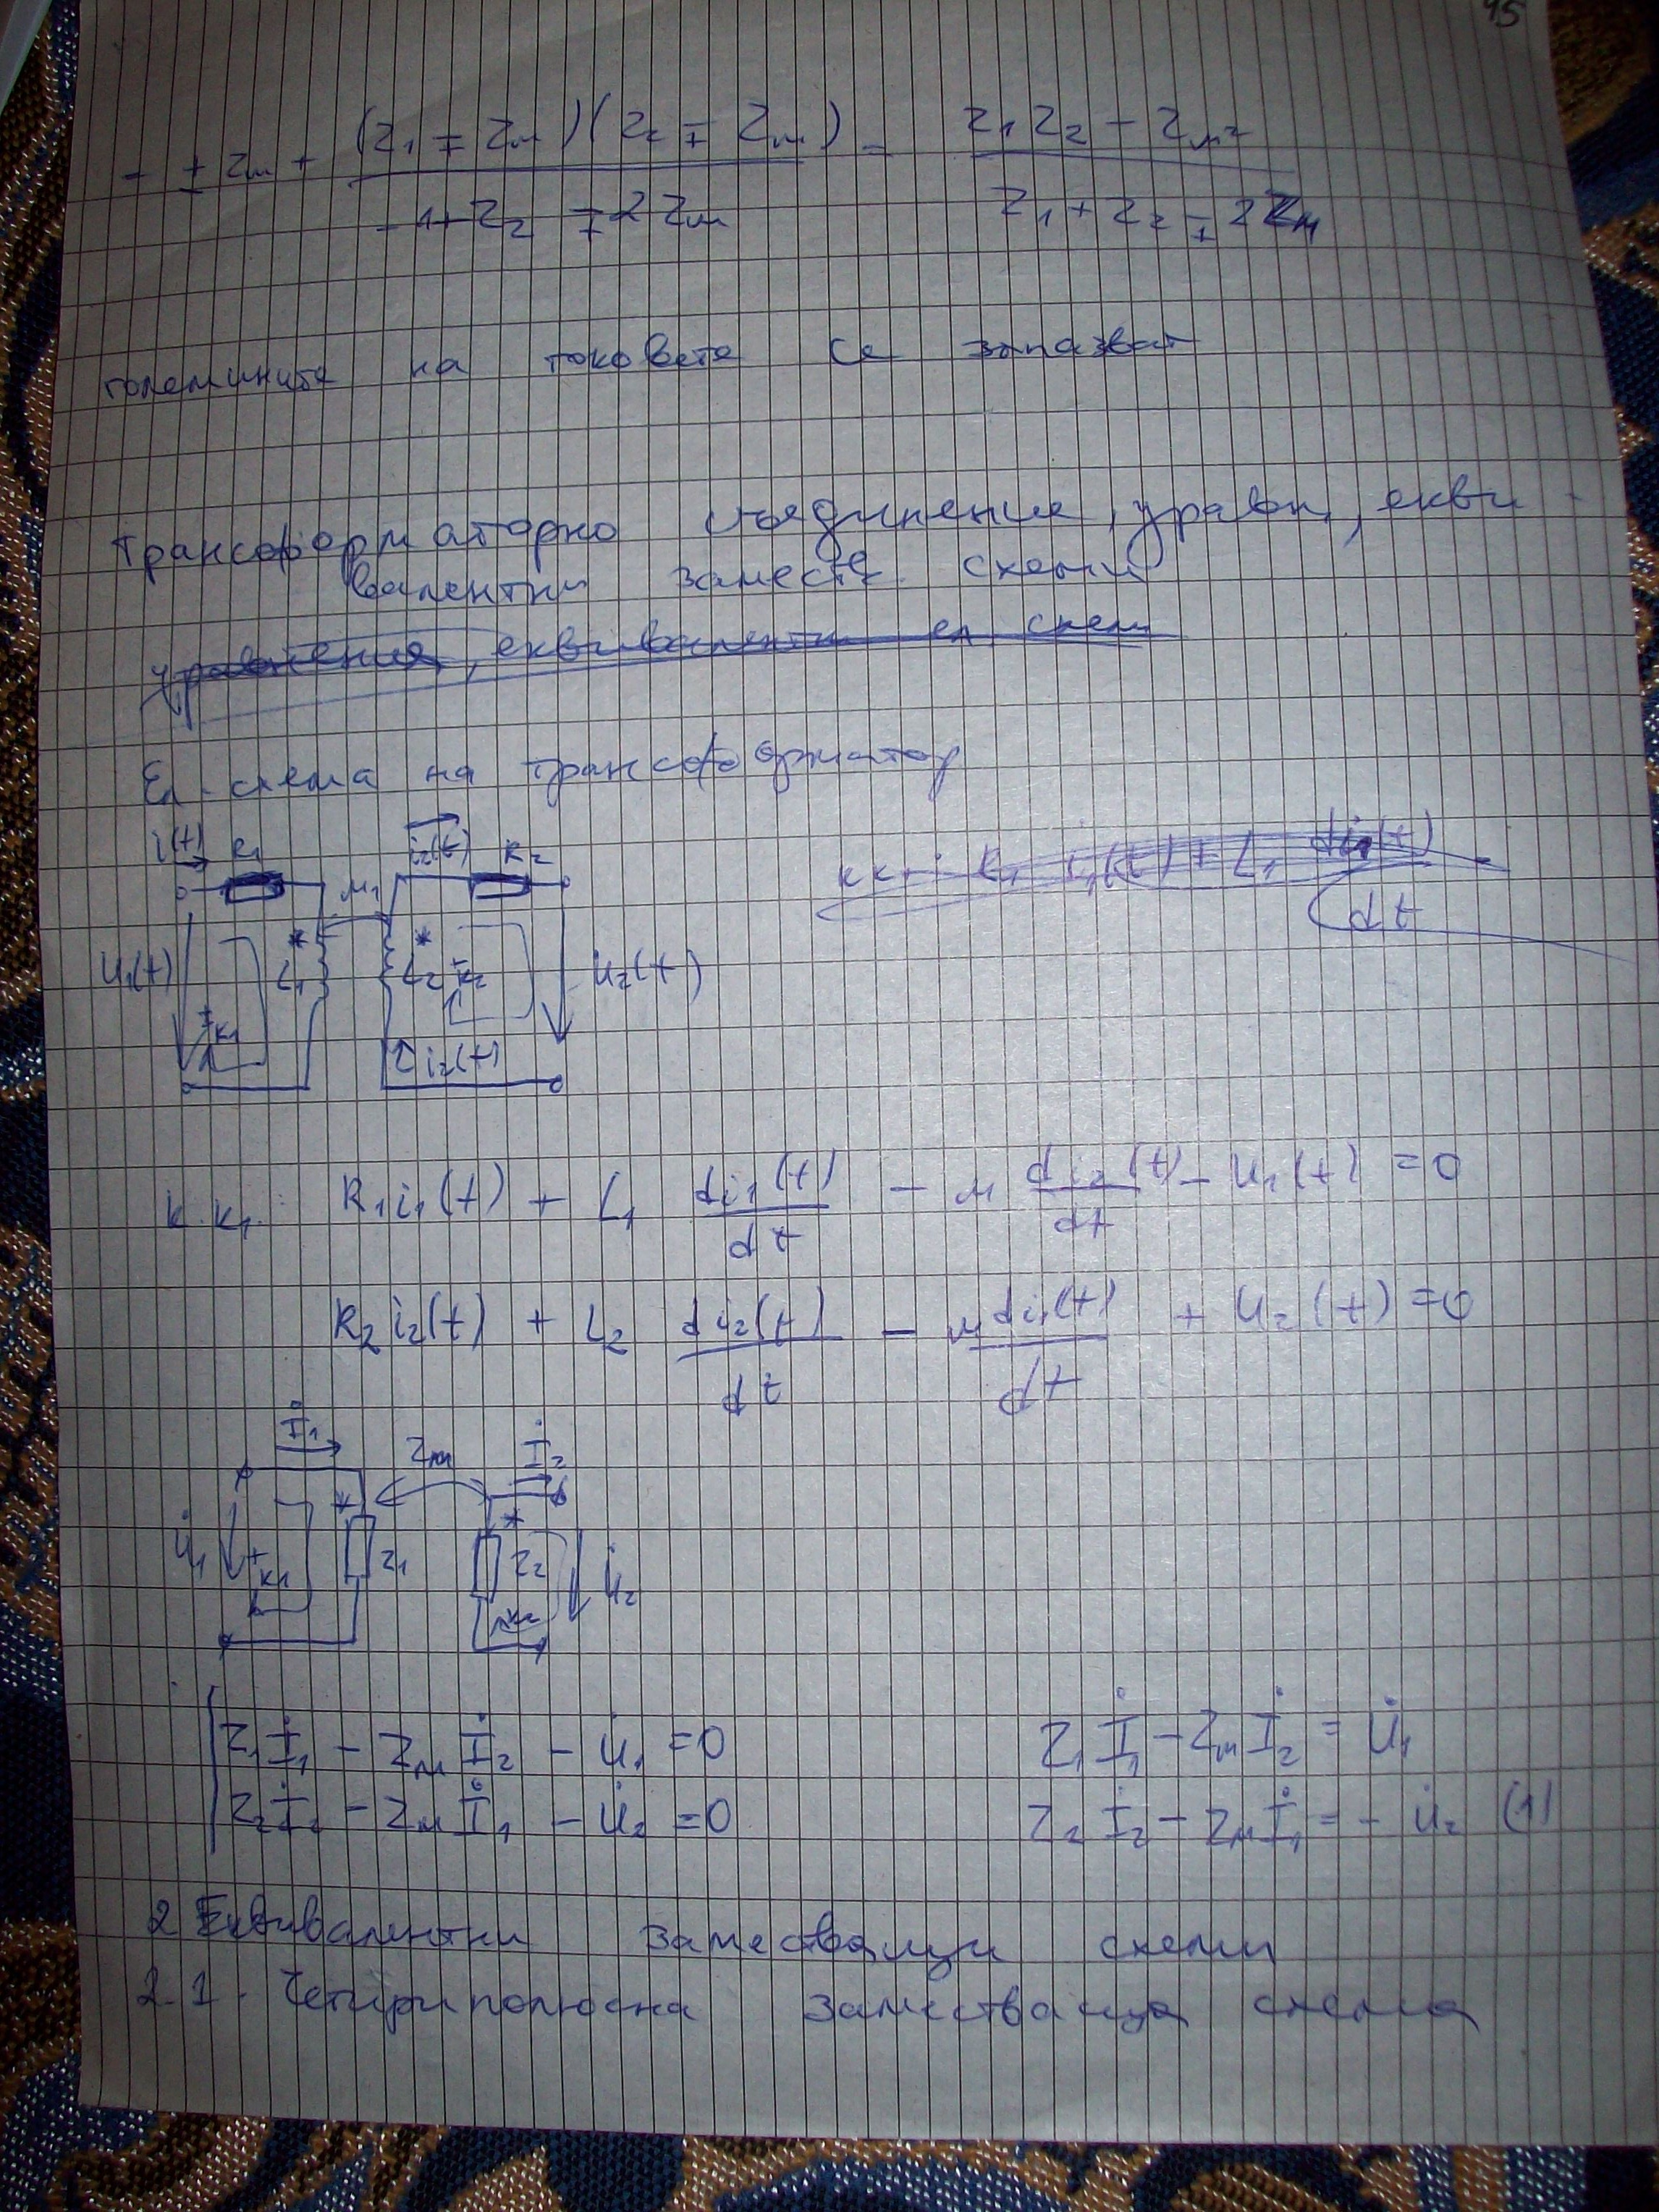 45
= ± Zм + (Z1 ∓ Zм)(Z2 ∓ Zм) / Z1+Z2 ∓ 2Zм = Z1Z2 - Zм² / Z1+Z2 ∓ 2Zм
големините на токовете се запазват
Трансформаторно съединение, уравн., екви-
валентни заместв. схеми
уравнения, еквивалентни ел схеми
Ел. схема на трансформатор
i(t) R1 M1 i2(t) R2
U1(t) * L1 * L2 +k2 U2(t)
+k1 i2(t)
kk1: R1 i1(t) + L1 di1(t)/dt
k.k1: R1i1(t) + L1 di1(t)/dt - M di2(t)/dt - U1(t) = 0
R2i2(t) + L2 di2(t)/dt - M di1(t)/dt + U2(t) = 0
İ1 Zм İ2
U̇1 +k1 * Z1 * Z2 +k2 U̇2
Z1İ1 - ZмİI2 - U̇1 = 0 Z1İ1 - Zмİ2 = U̇1
Z2İ2 - Zмİ1 - U̇2 = 0 Z2İ2 - Zмİ1 = - U̇2 (1)
2 Еквивалентни заместващи схеми
2.1. Четириполюсна заместваща схема